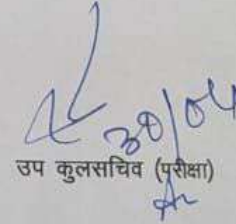 30/04
उप कुलसचिव (परीक्षा)